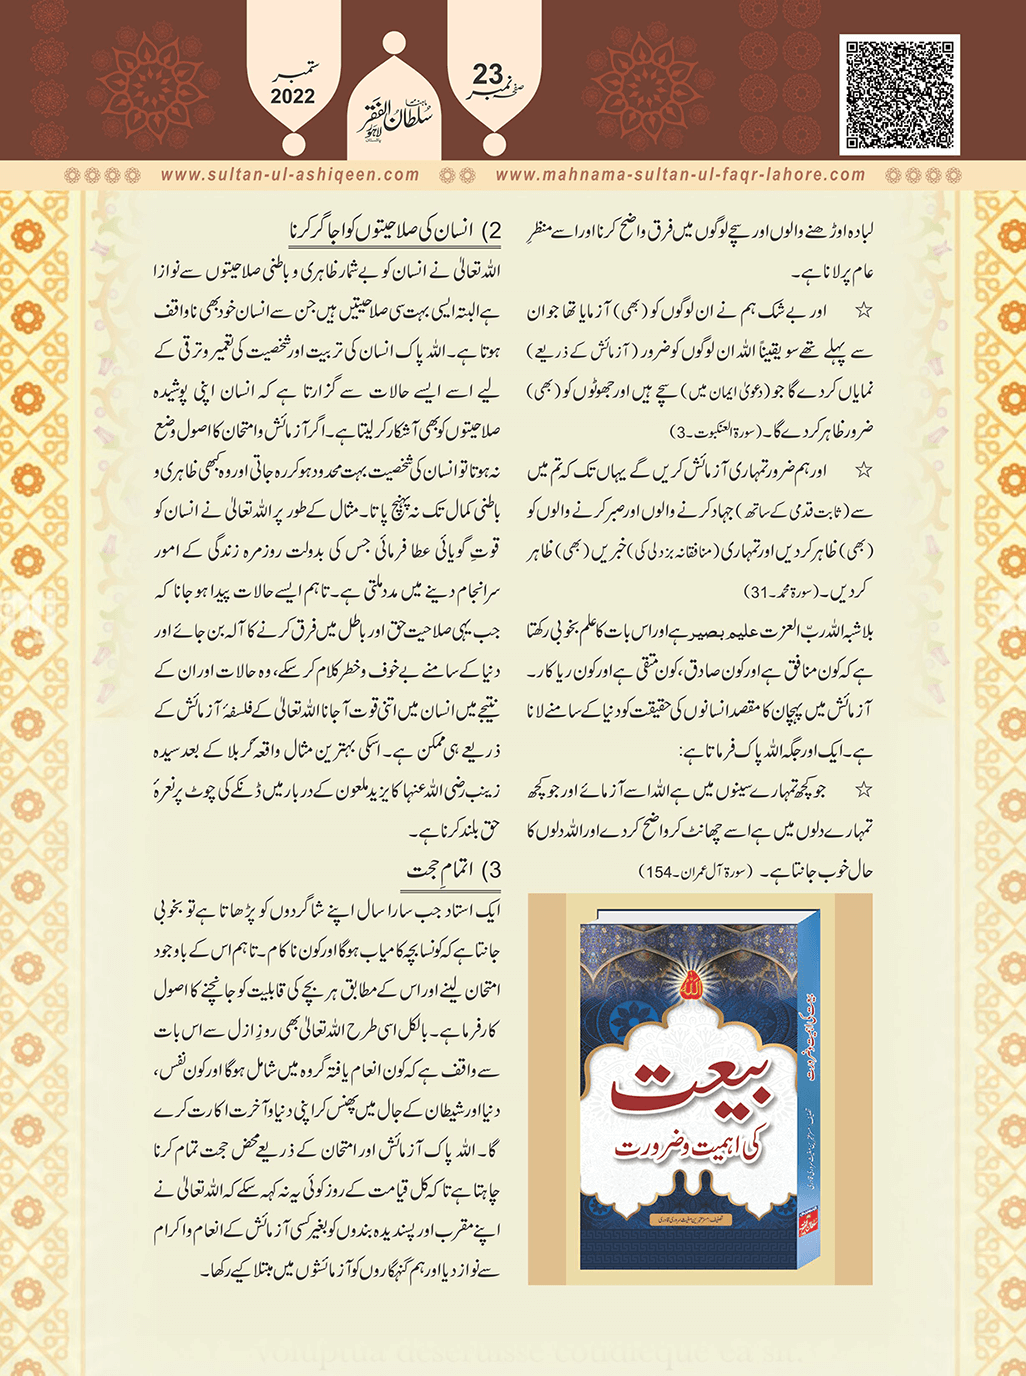 ستمبر
2022
ماہنامہ
سلطان الفقر
لاہور
صفحہ نمبر 23
www.sultan-ul-ashiqeen.com
www.mahnama-sultan-ul-faqr-lahore.com
لبادہ اوڑھنے والوں اور سچے لوگوں میں فرق واضح کرنا اور اسے منظرِ
عام پر لانا ہے۔
☆ اور بے شک ہم نے ان لوگوں کو (بھی) آزمایا تھا جو ان
سے پہلے تھے سو یقیناً اللہ ان لوگوں کو ضرور (آزمائش کے ذریعے)
نمایاں کر دے گا جو (دعویٰ ایمان میں) سچے ہیں اور جھوٹوں کو (بھی)
ضرور ظاہر کر دے گا۔ (سورۃ العنکبوت۔3)
☆ اور ہم ضرور تمہاری آزمائش کریں گے یہاں تک کہ تم میں
سے (ثابت قدمی کے ساتھ) جہاد کرنے والوں اور صبر کرنے والوں کو
(بھی) ظاہر کر دیں اور تمہاری (منافقانہ بزدلی کی) خبریں (بھی) ظاہر
کر دیں۔ (سورۃ محمد۔31)
بلاشبہ اللہ ربّ العزت علیم بصیر ہے اور اس بات کا علم بخوبی رکھتا
ہے کہ کون منافق ہے اور کون صادق، کون متقی ہے اور کون ریاکار۔
آزمائش میں پہچان کا مقصد انسانوں کی حقیقت کو دنیا کے سامنے لانا
ہے۔ ایک اور جگہ اللہ پاک فرماتا ہے:
☆ جو کچھ تمہارے سینوں میں ہے اللہ اسے آزمائے اور جو کچھ
تمہارے دلوں میں ہے اسے چھانٹ کر واضح کر دے اور اللہ دلوں کا
حال خوب جانتا ہے۔ (سورۃ آل عمران۔154)
بیعت
کی اہمیت و ضرورت
بیعت کی اہمیت و ضرورت
2) انسان کی صلاحیتوں کو اجاگر کرنا
اللہ تعالیٰ نے انسان کو بے شمار ظاہری و باطنی صلاحیتوں سے نوازا
ہے البتہ ایسی بہت سی صلاحیتیں ہیں جن سے انسان خود بھی ناواقف
ہوتا ہے۔ اللہ پاک انسان کی تربیت اور شخصیت کی تعمیر و ترقی کے
لیے اسے ایسے حالات سے گزارتا ہے کہ انسان اپنی پوشیدہ
صلاحیتوں کو بھی آشکار کر لیتا ہے۔ اگر آزمائش و امتحان کا اصول وضع
نہ ہوتا تو انسان کی شخصیت بہت محدود ہو کر رہ جاتی اور وہ کبھی ظاہری و
باطنی کمال تک نہ پہنچ پاتا۔ مثال کے طور پر اللہ تعالیٰ نے انسان کو
قوتِ گویائی عطا فرمائی جس کی بدولت روزمرہ زندگی کے امور
سرانجام دینے میں مدد ملتی ہے۔ تاہم ایسے حالات پیدا ہو جانا کہ
جب یہی صلاحیت حق اور باطل میں فرق کرنے کا آلہ بن جائے اور
دنیا کے سامنے بے خوف و خطر کلام کر سکے، وہ حالات اور ان کے
نتیجے میں انسان میں اتنی قوت آ جانا اللہ تعالیٰ کے فلسفۂ آزمائش کے
ذریعے ہی ممکن ہے۔ اسکی بہترین مثال واقعہ کربلا کے بعد سیدہ
زینب رضی اللہ عنہا کا یزید ملعون کے دربار میں ڈنکے کی چوٹ پر نعرۂ
حق بلند کرنا ہے۔
3) اتمامِ حجت
ایک استاد جب سارا سال اپنے شاگردوں کو پڑھاتا ہے تو بخوبی
جانتا ہے کہ کونسا بچہ کامیاب ہوگا اور کون ناکام۔ تاہم اس کے باوجود
امتحان لینے اور اس کے مطابق ہر بچے کی قابلیت کو جانچنے کا اصول
کارفرما ہے۔ بالکل اسی طرح اللہ تعالیٰ بھی روزِ ازل سے اس بات
سے واقف ہے کہ کون انعام یافتہ گروہ میں شامل ہوگا اور کون نفس،
دنیا اور شیطان کے جال میں پھنس کر اپنی دنیا و آخرت اکارت کرے
گا۔ اللہ پاک آزمائش اور امتحان کے ذریعے محض حجت تمام کرنا
چاہتا ہے تاکہ کل قیامت کے روز کوئی یہ نہ کہہ سکے کہ اللہ تعالیٰ نے
اپنے مقرب اور پسندیدہ بندوں کو بغیر کسی آزمائش کے انعام و اکرام
سے نواز دیا اور ہم گنہگاروں کو آزمائشوں میں مبتلا کیے رکھا۔